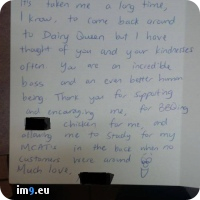 It's taken me a long time,
I know, to come back around
to Dairy Queen but I have
thought of you and your kindness
often. You are an incredible
boss and an even better human
being. Thank you for supporting
and encouraging me, for BBQing
chicken for me, and
allowing me to study for my
MCATs in the back when no
customers were around
Much love,
im9.eu